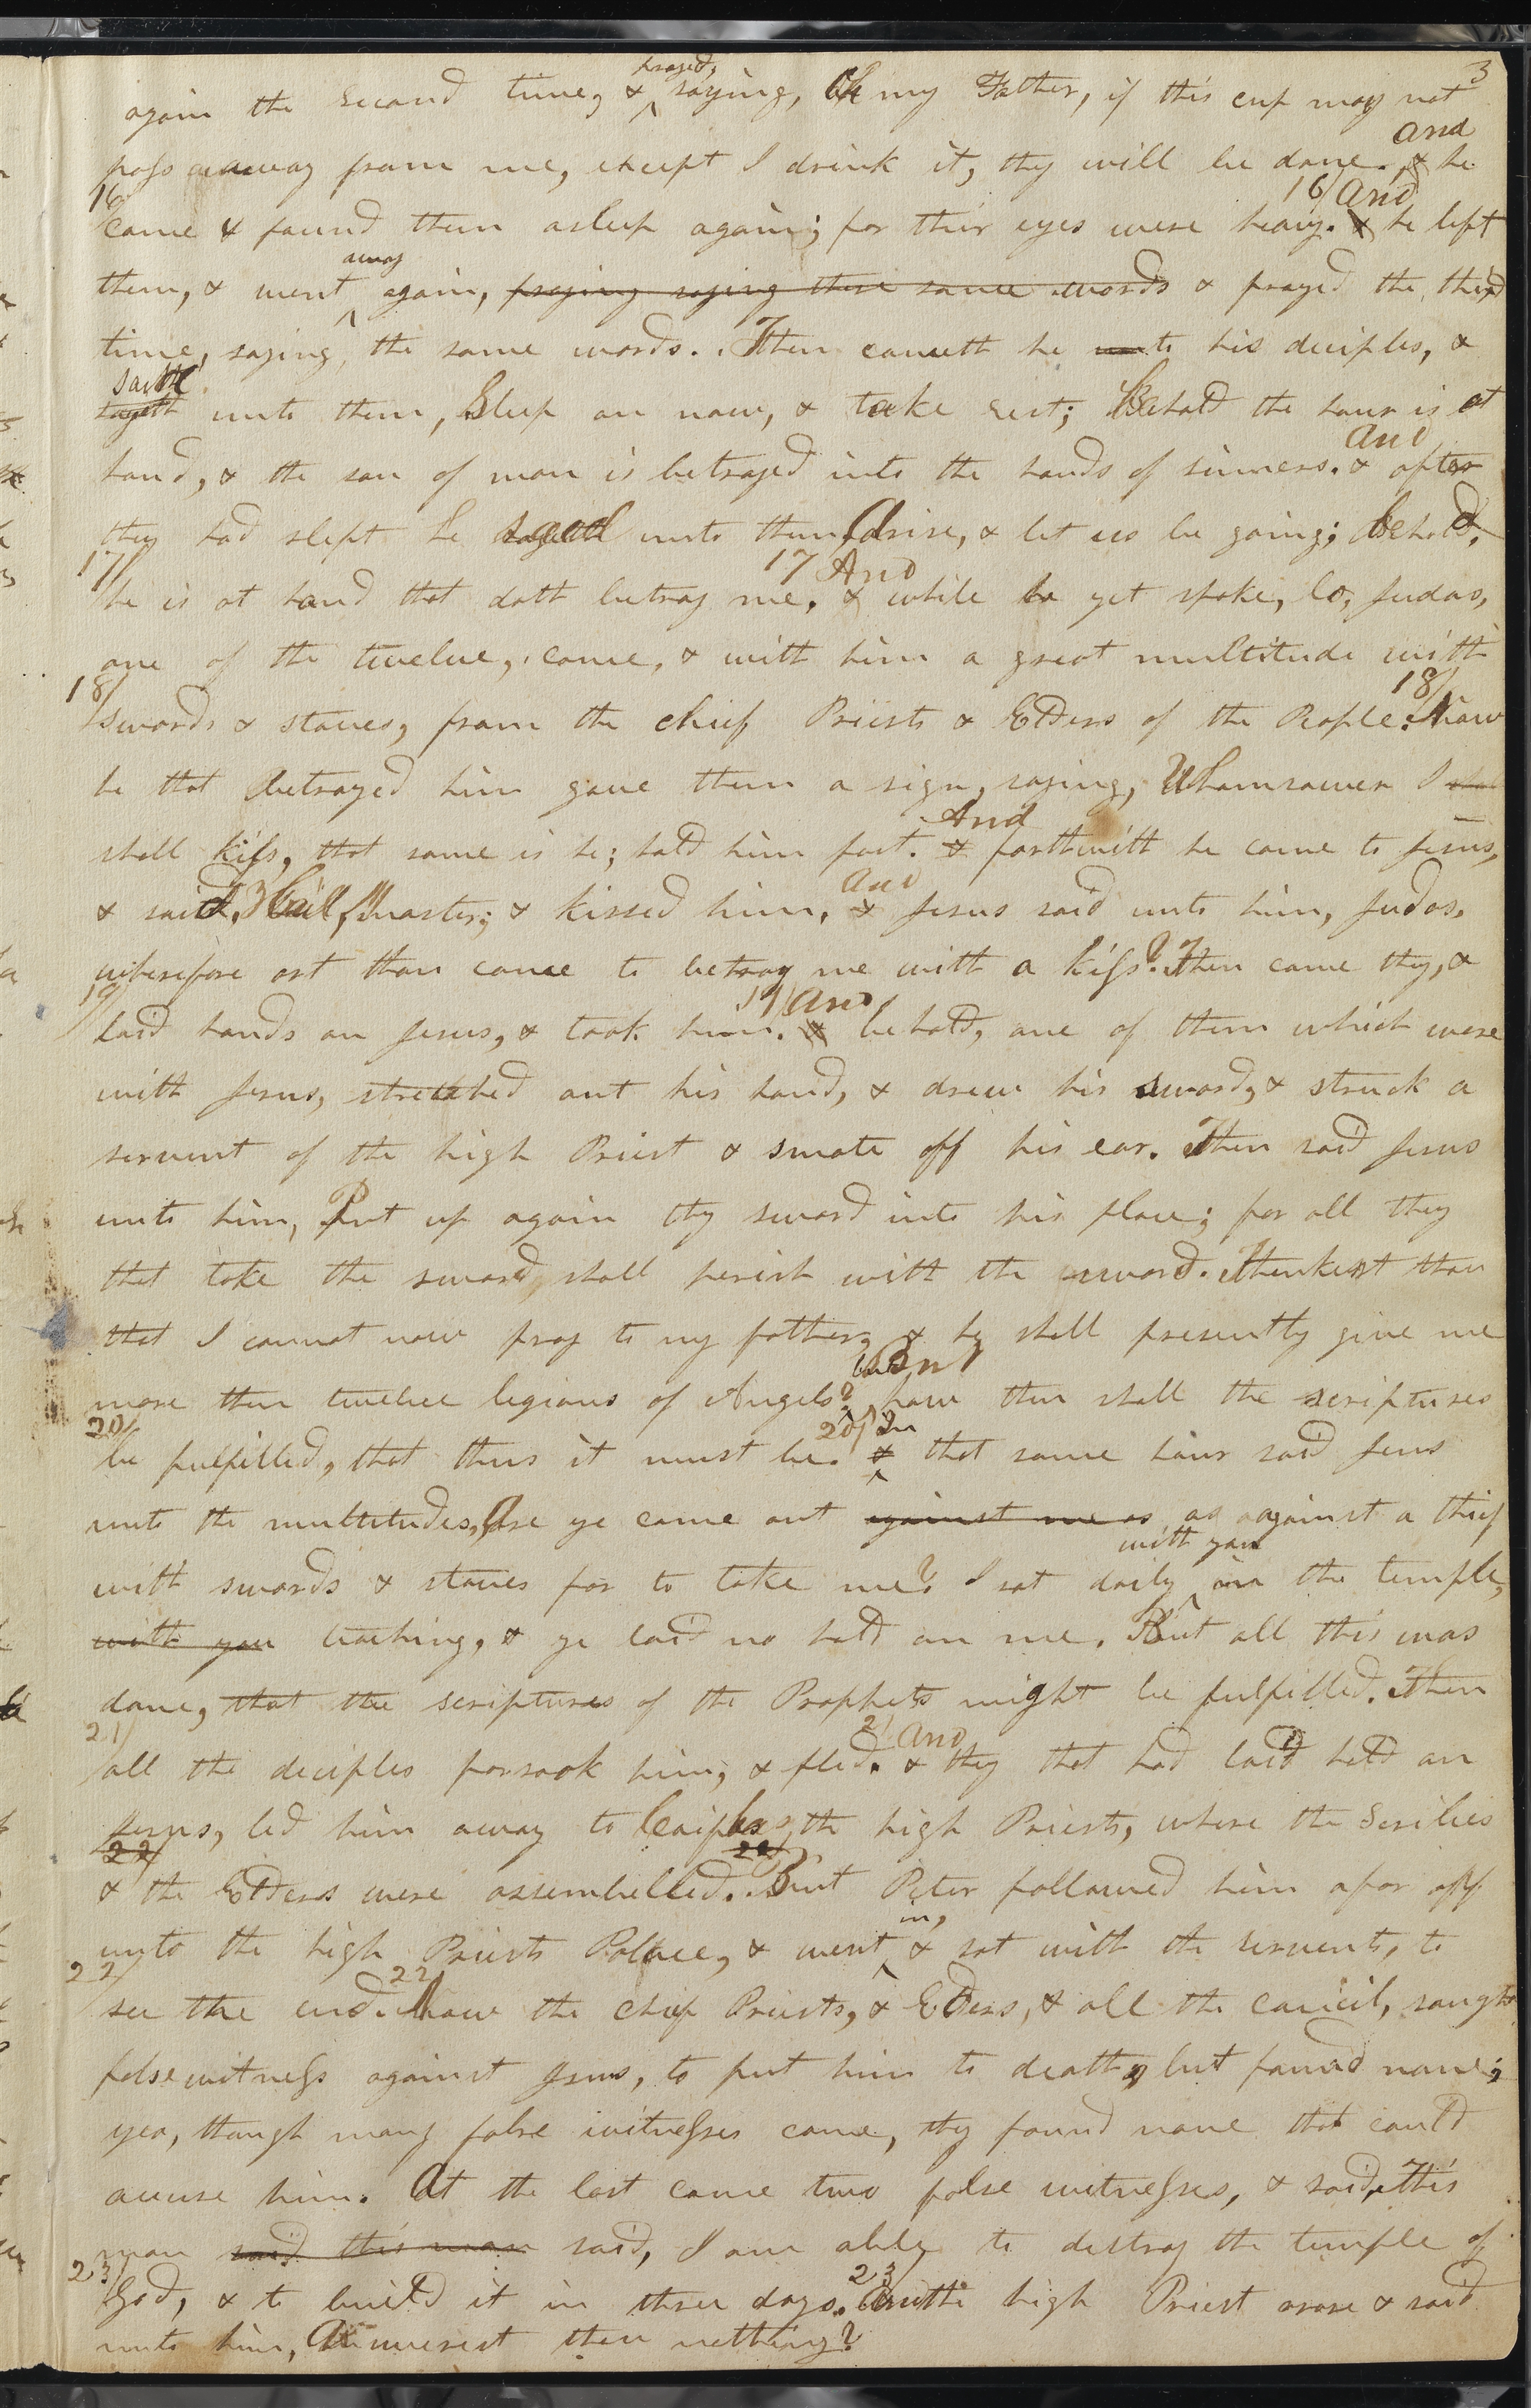 3
again the second time, & prayed, saying, Oh my Father, if this cup may not
pass away from me, except I drink it, thy will be done. & and he
16/ came & found them asleep again; for their eyes were heavy. 16/ & and he left
them, & went away again, praying saying these same words & prayed the third
time, saying, the same words. Then cometh he unto his deciples, &
sayeth saith unto them, Sleep on now, & take rest; Behold the hour is at
hand, & the son of man is betrayed into the hands of sinners. & and after
they had slept he said unto them, Arise, & let us be going; Behold,
17/ he is at hand that doth betray me. 17 & And while he yet spake, lo, Judas,
one of the twelve, came, & with him a great multitude with
18/ swords & staves, from the chief Priests & Elders of the People. 18/ Now
he that betrayed him gave them a sign, saying, Whomsoever I shal
shall kiss, that same is he; hold him fast. & And forthwith he came to Jesus,
& said, Hail, Master; & kissed him, & and Jesus said unto him, Judas,
wherefore art thou come to betray me with a kiss? Then came they, &
19/ laid hands on Jesus, & took him. 19/ & and behold, one of them which were
with Jesus, stretched out his hand, & drew his sword, & struck a
servent of the high Priest & smote off his ear. Then said Jesus
unto him, Put up again thy sword into his place; for all they
that take the sword, shall perish with the sword. Thinkest thou
that I cannot now pray to my father, & he shall presently give me
more then twelve legions of Angels? but how then shall the scriptures
20/ be fulfilled, that thus it must be. 20/ & In that same hour said Jesus
unto the multitudes, Are ye come out against me as as against a thief
with swords & staves for to take me? I sat daily with you in the temple,
with you teaching, & ye laid no hold on me. But all this was
done, that the scriptures of the Prophets might be fulfilled. Then
21/ all the deciples forsook him, & fled. 21 & and they that had laid hold on
Jesus, led him away to Caiphas, the high Priests, where the Scribes
22/ & the Elders were assembelled. 22/ But Peter followed him afar off
unto the high Priests Pallace, & went in, & sat with the servents, to
22/ see the end. 22/ Now the chief Priests, & Elders, & all the council, sought
false witness against Jesus, to put him to death, but found none;
yea, though many false witnesses came, they found none that could
accuse him. At the last came two false witnesses, & said, This
man said this man said, I am able to destroy the temple of
23/ God, & to build it in three days. 23/ And the high Priest arose & said
unto him, Answerest thou nothing?